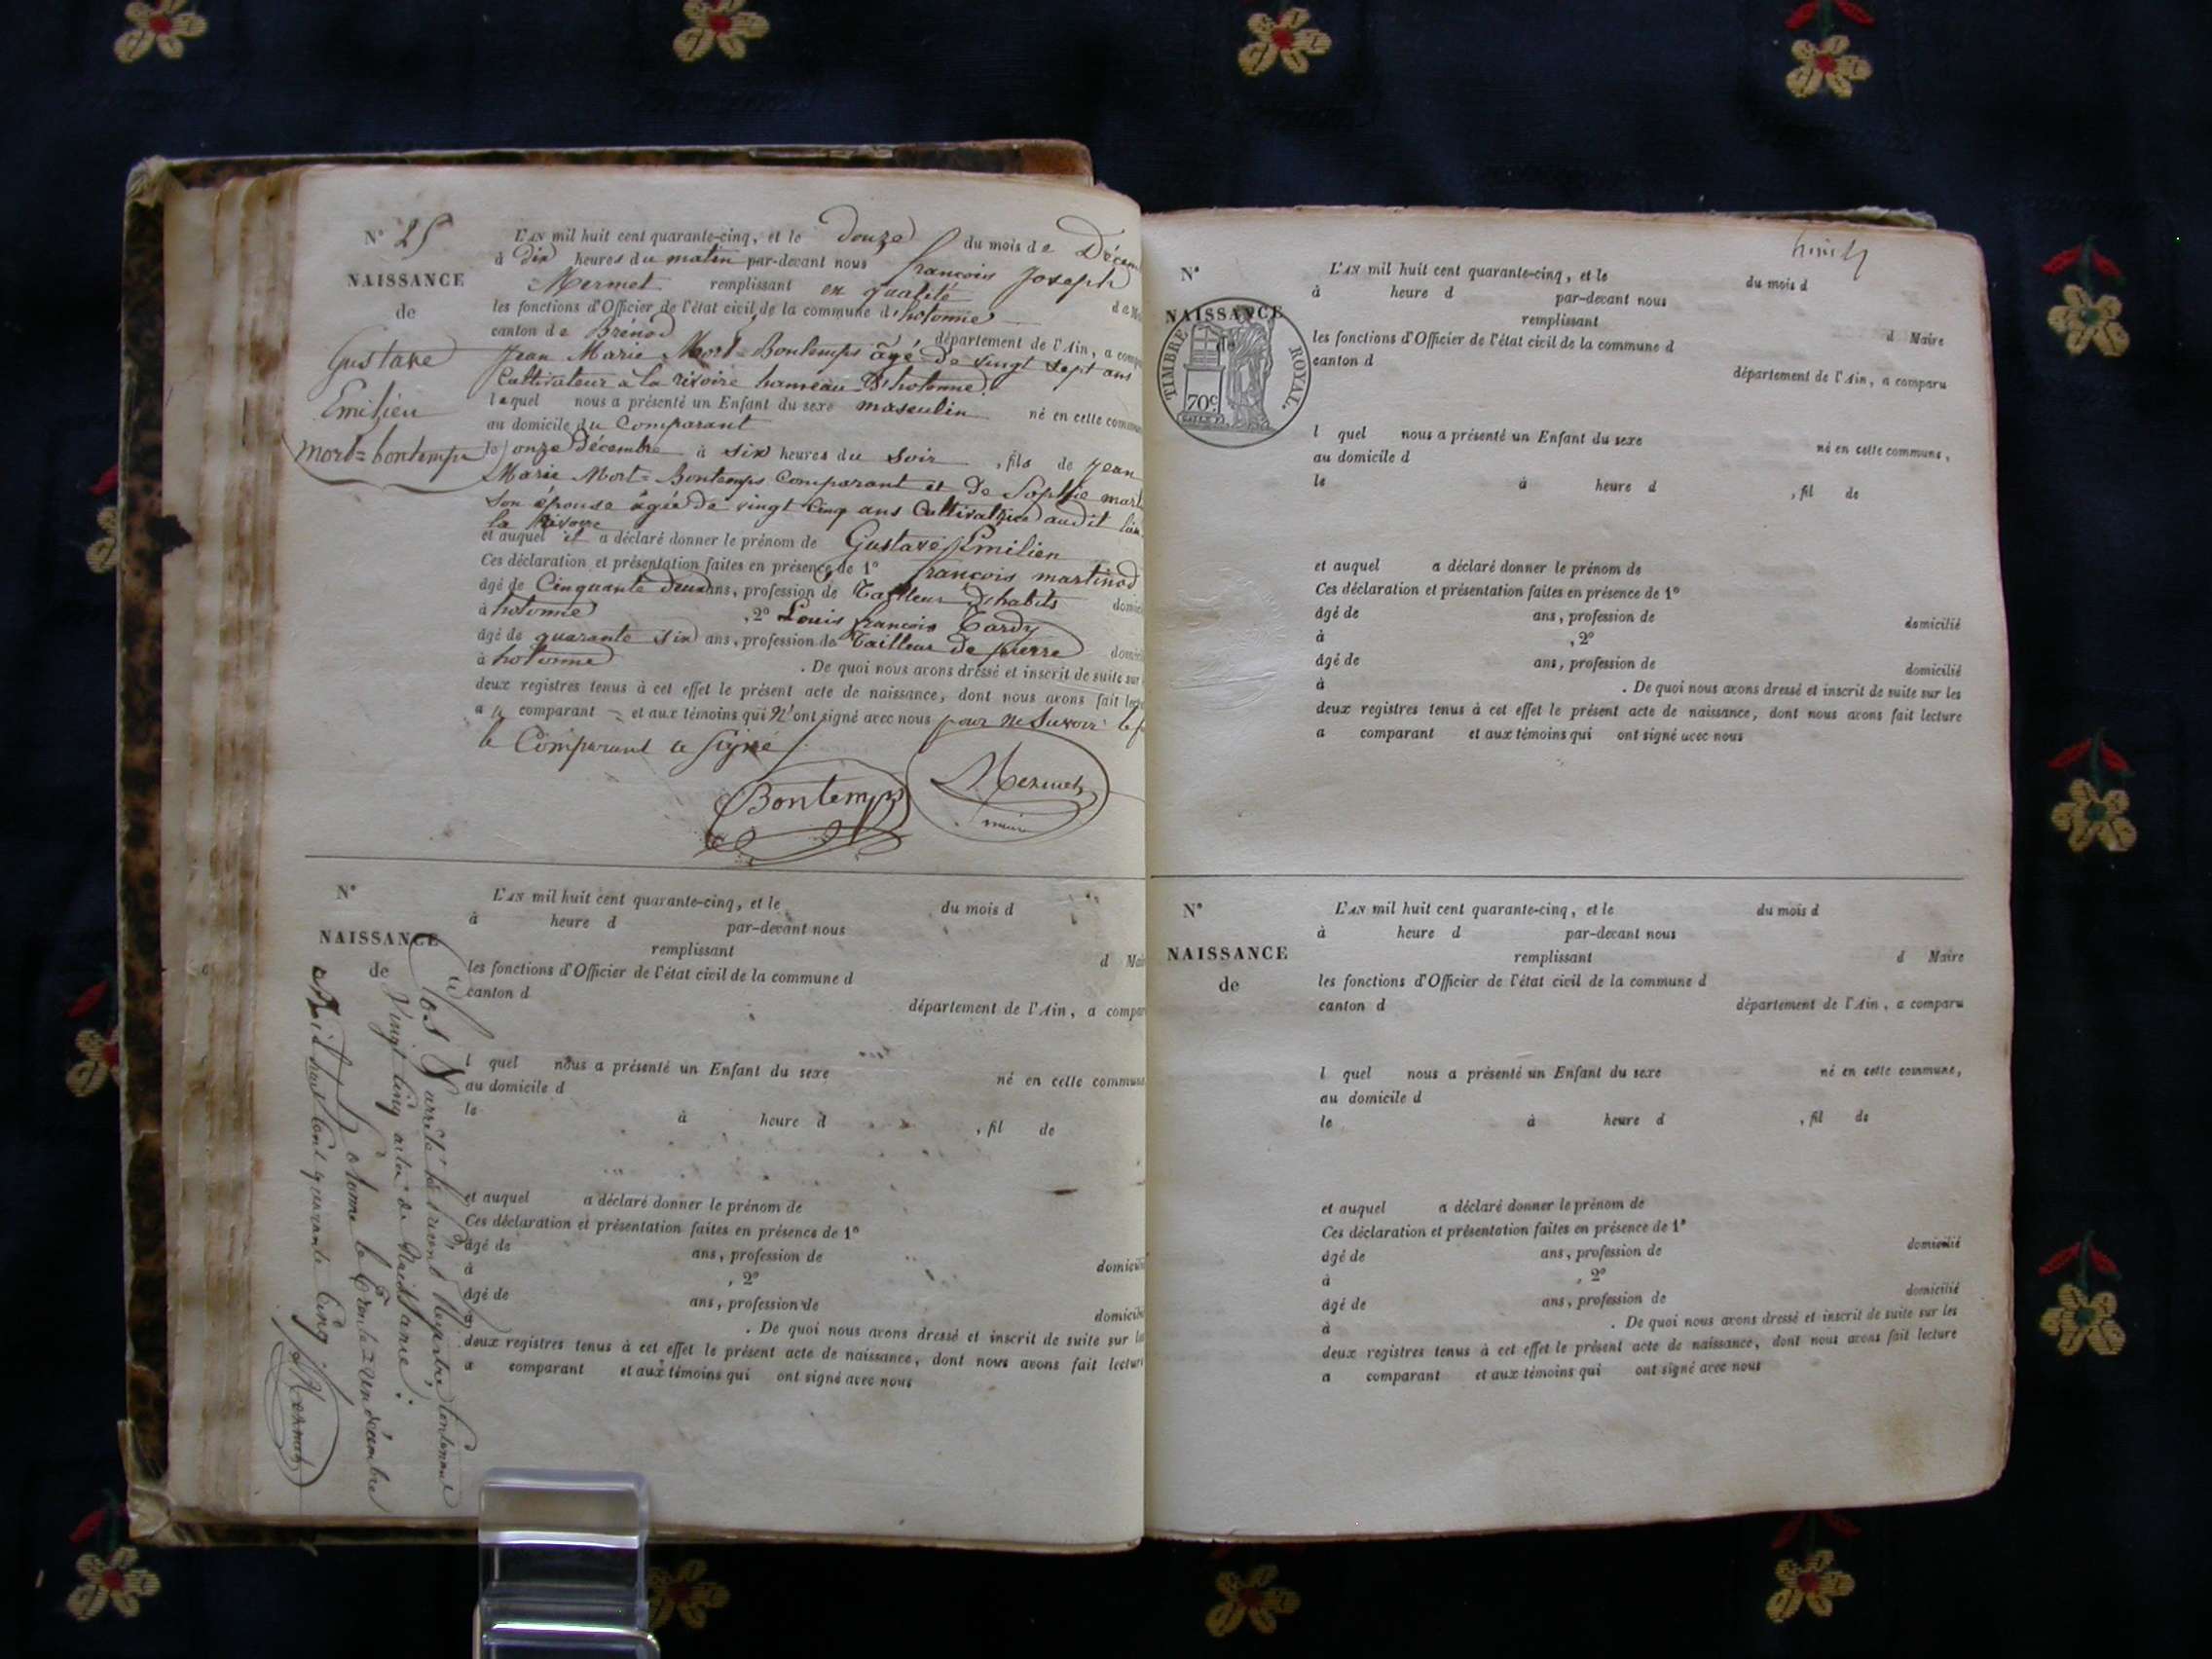 N° 25
NAISSANCE
de
Gustave
Emilien
mort=bontemps
L'AN mil huit cent quarante-cinq, et le douze du mois de Décem
à dix heures du matin par-devant nous françois Joseph
Mermet remplissant en qualité
les fonctions d'Officier de l'état civil de la commune d'hotonne de M
canton de Brénod département de l'Ain, a comp
Jean Marie Mort=Bontemps âgé de vingt sept ans
Cultivateur à la rivoire hameau D'hotonne.
lequel nous a présenté un Enfant du sexe masculin né en cette commun
au domicile du Comparant
le onze Décembre à six heures du soir, fils de Jean
Marie Mort=Bontemps Comparant et de Sophie mart
son épouse âgée de vingt Cinq ans Cultivatrice audit lieu
la Rivoire
et auquel il a déclaré donner le prénom de Gustave Emilien
Ces déclaration et présentation faites en présence de 1° françois martinod
âgé de Cinquante deux ans, profession de Tailleur D'habits domici
à hotonne, 2° Louis françois Tardy
âgé de quarante six ans, profession de Tailleur de pierre domici
à hotonne. De quoi nous avons dressé et inscrit de suite sur
deux registres tenus à cet effet le présent acte de naissance, dont nous avons fait lect
a u comparant et aux témoins qui n'ont signé avec nous pour ne savoir le f
le Comparant a signé
Bontemps
Mermet
maire
N°
NAISSANCE
de
L'AN mil huit cent quarante-cinq, et le du mois d
à heure d par-devant nous
remplissant
d Mai
les fonctions d'Officier de l'état civil de la commune d
canton d
département de l'Ain, a compar
l quel nous a présenté un Enfant du sexe né en cette commune
au domicile d
le à heure d , fil de
et auquel a déclaré donner le prénom de
Ces déclaration et présentation faites en présence de 1°
âgé de ans, profession de domicilié
à , 2°
âgé de ans, profession de domicilié
à . De quoi nous avons dressé et inscrit de suite sur les
deux registres tenus à cet effet le présent acte de naissance, dont nous avons fait lecture
a comparant et aux témoins qui ont signé avec nous
Clos & arrêté le présent Registre Contenant
Vingt Cinq actes de Naissance.
à hotonne le Trente=un décembre
Mil huit Cent quarante Cinq
Mermet
N°
NAISSANCE
de
TIMBRE ROYAL.
70 c
L'AN mil huit cent quarante-cinq, et le du mois d
à heure d par-devant nous
remplissant
d Maire
les fonctions d'Officier de l'état civil de la commune d
canton d
département de l'Ain, a comparu
l quel nous a présenté un Enfant du sexe né en cette commune,
au domicile d
le à heure d , fil de
et auquel a déclaré donner le prénom de
Ces déclaration et présentation faites en présence de 1°
âgé de ans, profession de domicilié
à , 2°
âgé de ans, profession de domicilié
à . De quoi nous avons dressé et inscrit de suite sur les
deux registres tenus à cet effet le présent acte de naissance, dont nous avons fait lecture
a comparant et aux témoins qui ont signé avec nous
N°
NAISSANCE
de
L'AN mil huit cent quarante-cinq, et le du mois d
à heure d par-devant nous
remplissant d Maire
les fonctions d'Officier de l'état civil de la commune d
canton d département de l'Ain, a comparu
l quel nous a présenté un Enfant du sexe né en cette commune,
au domicile d
le à heure d , fil de
et auquel a déclaré donner le prénom de
Ces déclaration et présentation faites en présence de 1°
âgé de ans, profession de domicilié
à , 2°
âgé de ans, profession de domicilié
à . De quoi nous avons dressé et inscrit de suite sur les
deux registres tenus à cet effet le présent acte de naissance, dont nous avons fait lecture
a comparant et aux témoins qui ont signé avec nous